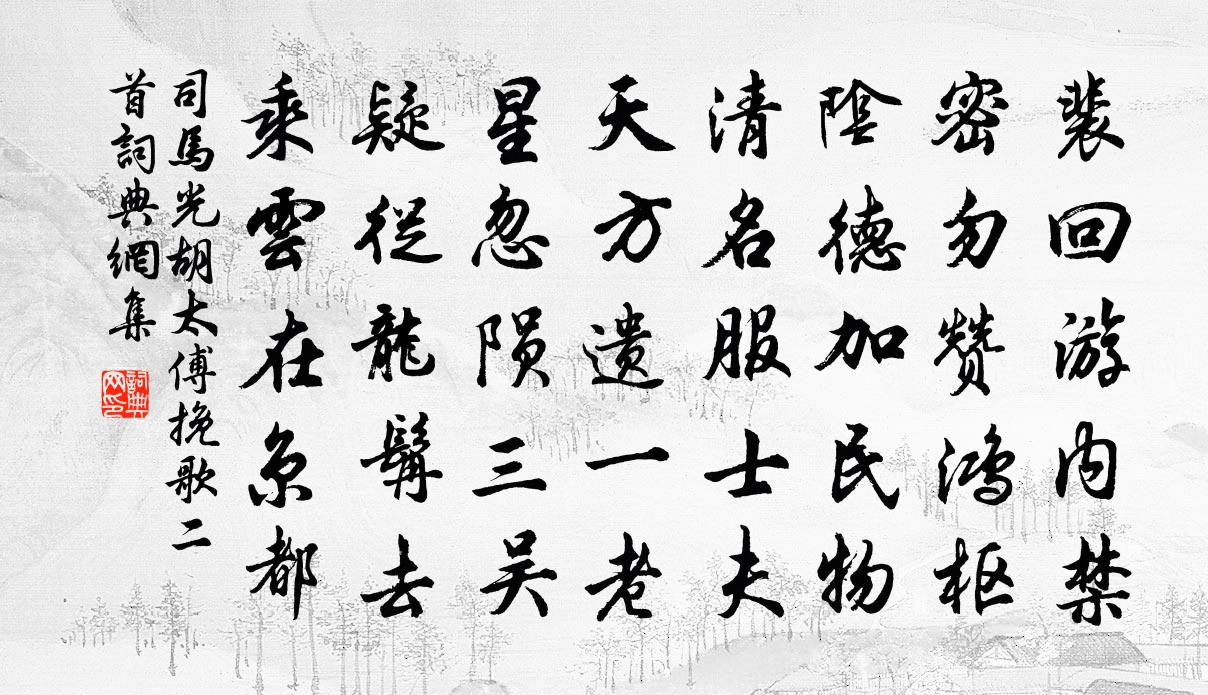 裴回游内禁
密勿赞鸿枢
陰德加民物
清名服士夫
天方遗一老
星忽陨三吴
疑從龍髯去
乘雲在京都
司馬光胡太傅挽歌二
首詞典網集
詞典
网印